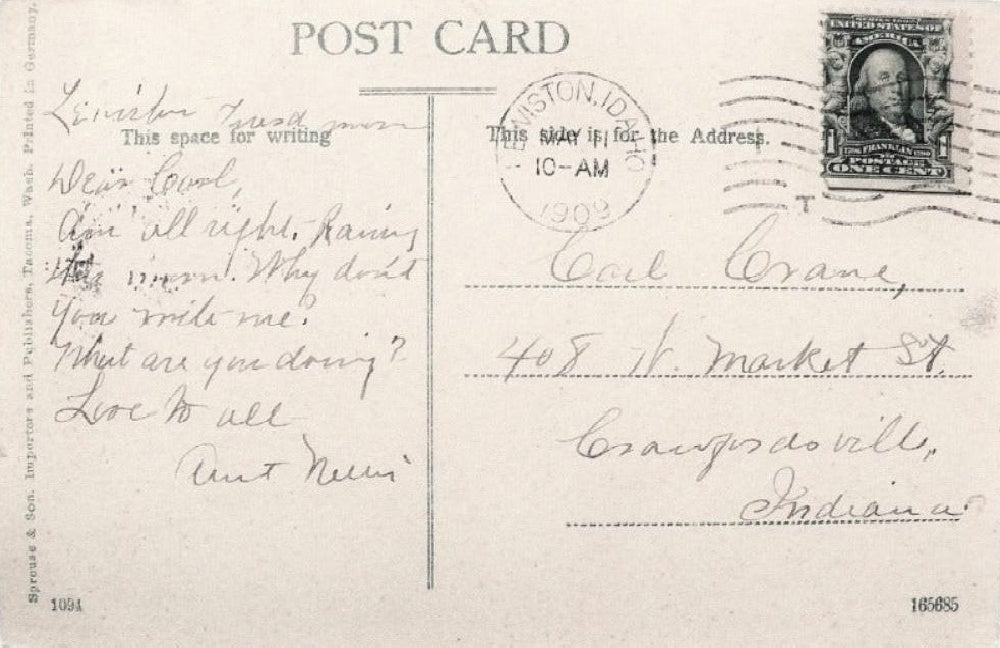 POST CARD
SERIES 1902
UNITED STATES OF
AMERICA
1 FRANKLIN 1
POSTAGE
ONE CENT
LEWISTON, IDAHO
MAY 11
10-AM
1909
T
This space for writing
This side is for the Address.
Lewiston Tuesd morn
Dear Carl,
Am all right. Raining
this morn. Why don't
You write me?
What are you doing?
Love to all
Aunt Nellie
Carl Crane,
408 W. Market St.
Crawfordsville,
Indiana
Sprouse & Son. Importers and Publishers, Tacoma, Wash. Printed in Germany.
1094
165685